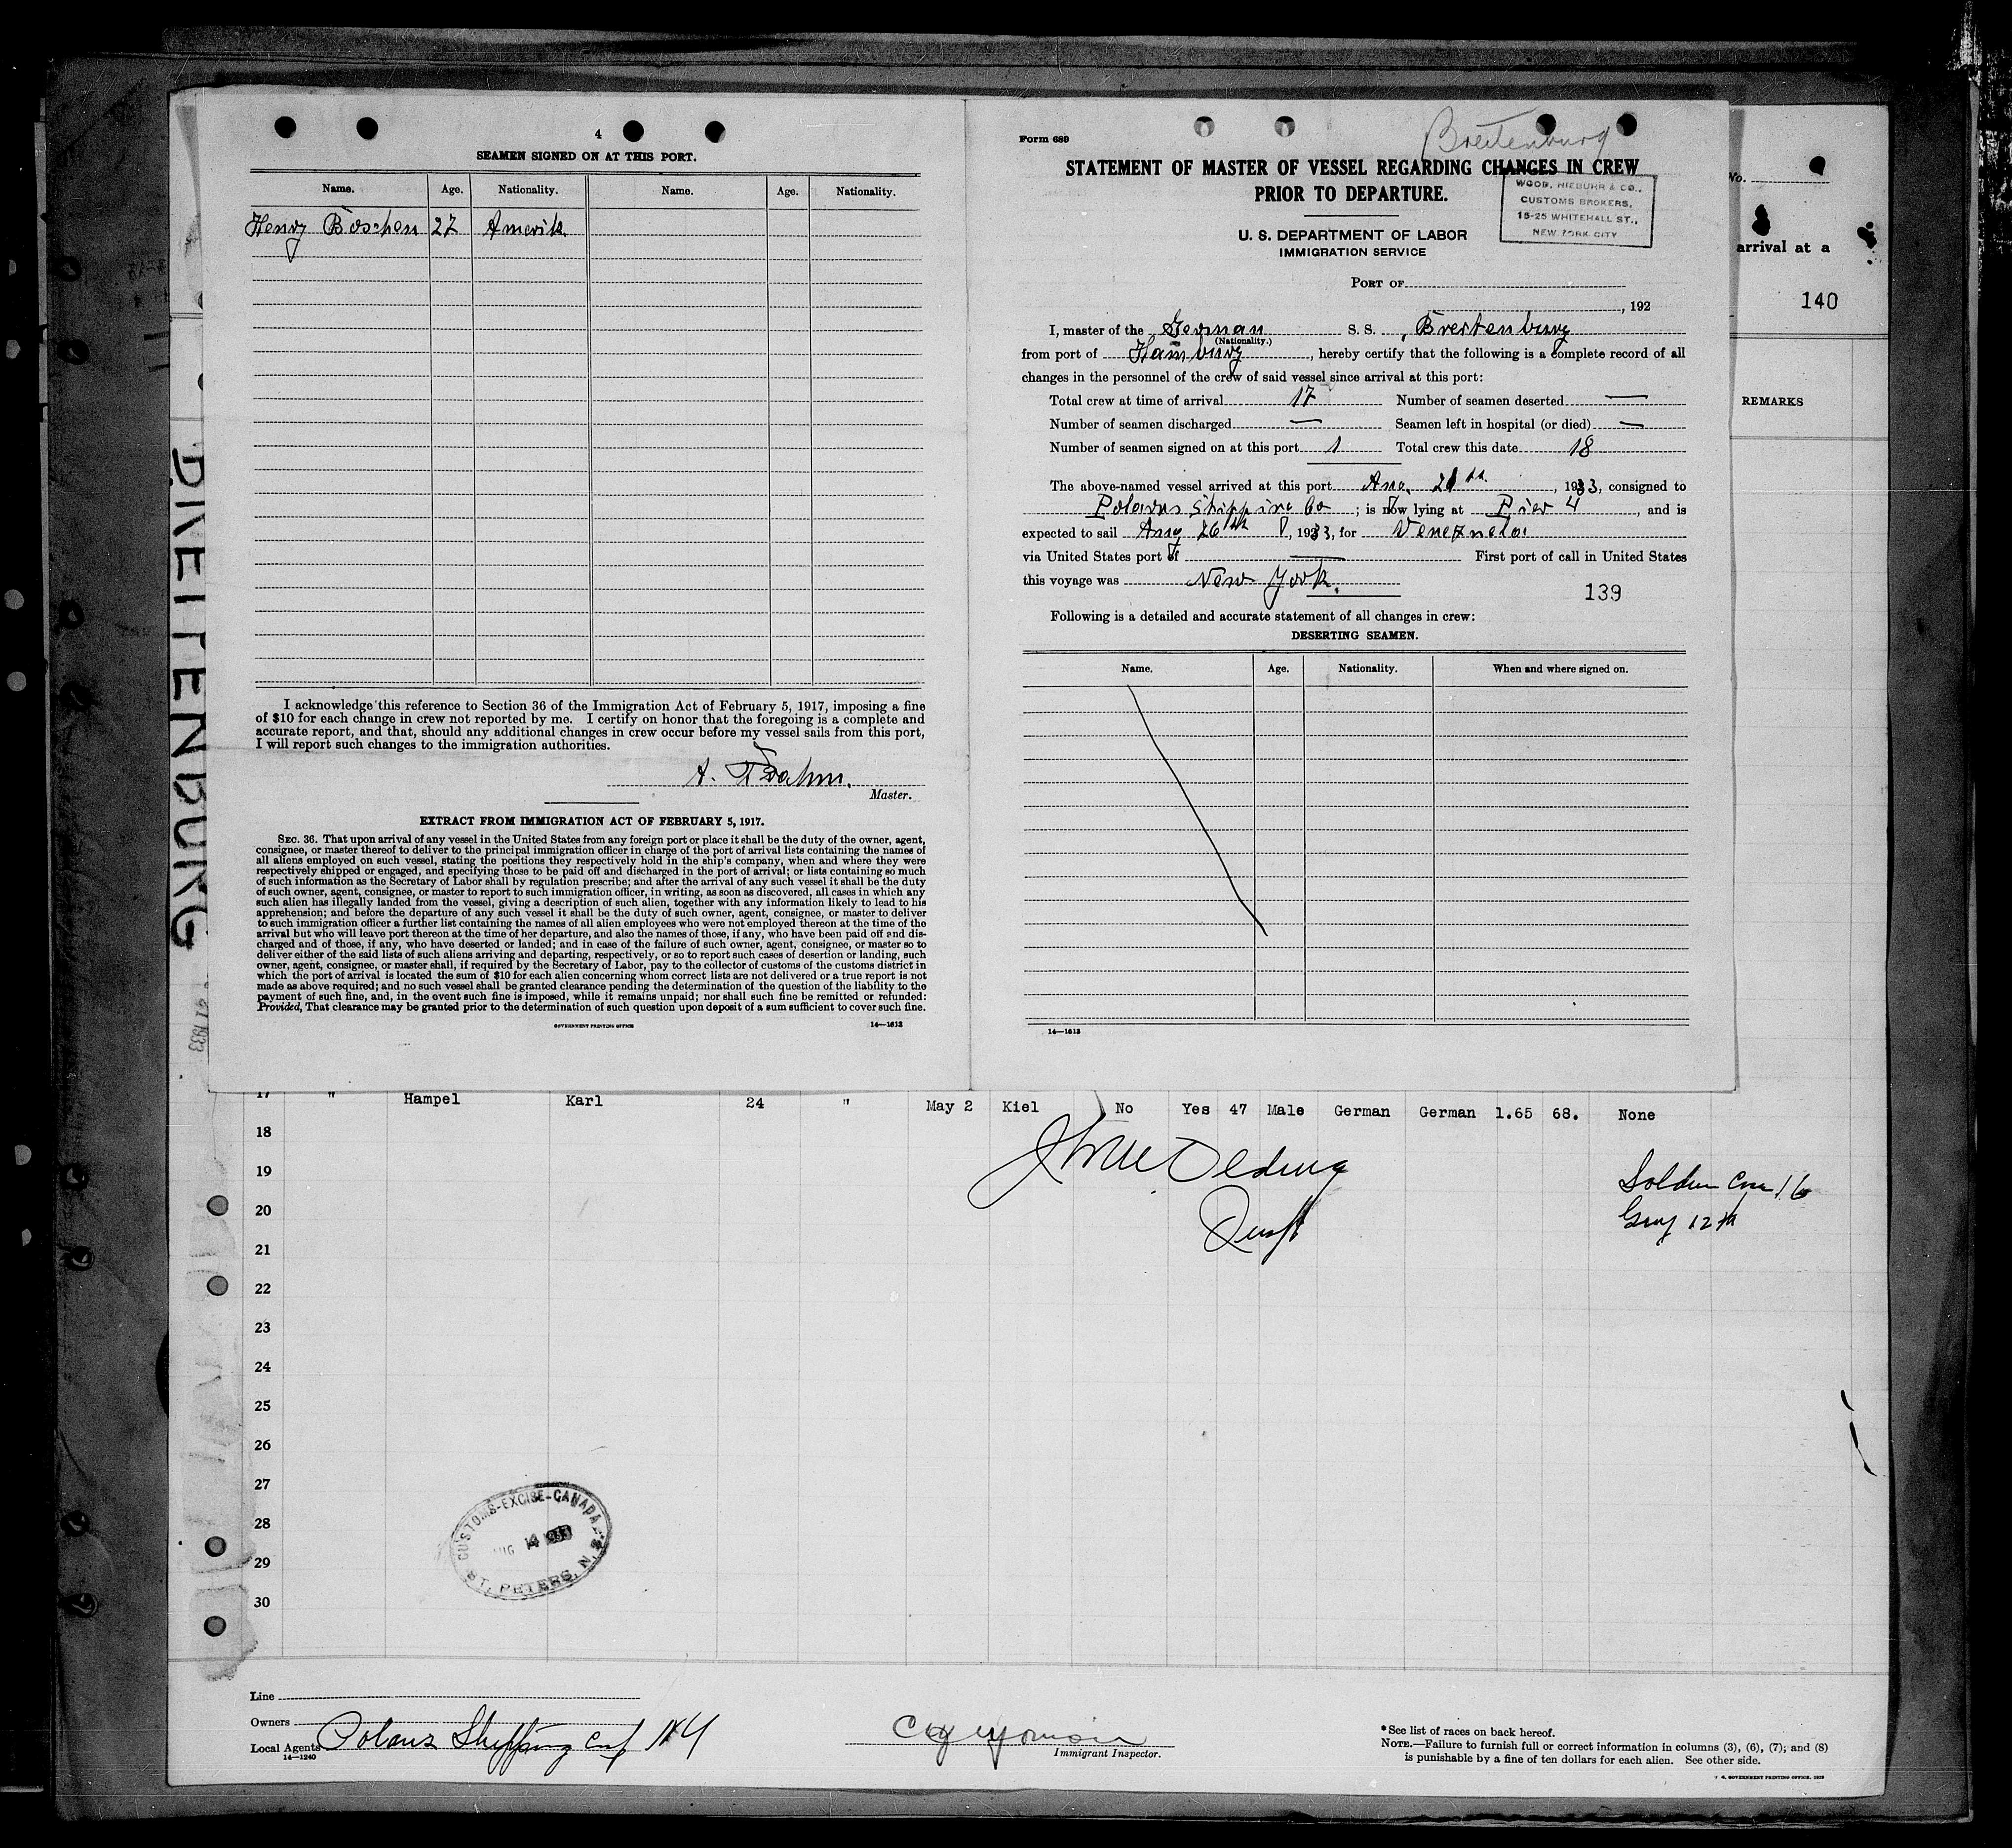 4
SEAMEN SIGNED ON AT THIS PORT.
Name. Age. Nationality. Name. Age. Nationality.
Henry Böschen 27 Amerik.
I acknowledge this reference to Section 36 of the Immigration Act of February 5, 1917, imposing a fine
of $10 for each change in crew not reported by me. I certify on honor that the foregoing is a complete and
accurate report, and that, should any additional changes in crew occur before my vessel sails from this port,
I will report such changes to the immigration authorities.
A.
Master.
EXTRACT FROM IMMIGRATION ACT OF FEBRUARY 5, 1917.
SEC. 36. That upon arrival of any vessel in the United States from any foreign port or place it shall be the duty of the owner, agent,
consignee, or master thereof to deliver to the principal immigration officer in charge of the port of arrival lists containing the names of
all aliens employed on such vessel, stating the positions they respectively hold in the ship's company, when and where they were
respectively shipped or engaged, and specifying those to be paid off and discharged in the port of arrival; or lists containing so much
of such information as the Secretary of Labor shall by regulation prescribe; and after the arrival of any such vessel it shall be the duty
of such owner, agent, consignee, or master to report to such immigration officer, in writing, as soon as discovered, all cases in which any
such alien has illegally landed from the vessel, giving a description of such alien, together with any information likely to lead to his
apprehension; and before the departure of any such vessel it shall be the duty of such owner, agent, consignee, or master to deliver
to such immigration officer a further list containing the names of all alien employees who were not employed thereon at the time of the
arrival but who will leave port thereon at the time of her departure, and also the names of those, if any, who have been paid off and dis-
charged and of those, if any, who have deserted or landed; and in case of the failure of such owner, agent, consignee, or master so to
deliver either of the said lists of such aliens arriving and departing, respectively, or so to report such cases of desertion or landing, such
owner, agent, consignee, or master shall, if required by the Secretary of Labor, pay to the collector of customs of the customs district in
which the port of arrival is located the sum of $10 for each alien concerning whom correct lists are not delivered or a true report is not
made as above required; and no such vessel shall be granted clearance pending the determination of the question of the liability to the
payment of such fine, and, in the event such fine is imposed, while it remains unpaid; nor shall such fine be remitted or refunded:
Provided, That clearance may be granted prior to the determination of such question upon deposit of a sum sufficient to cover such fine.
GOVERNMENT PRINTING OFFICE 14—1613
Form 689
Breitenburg
STATEMENT OF MASTER OF VESSEL REGARDING CHANGES IN CREW
PRIOR TO DEPARTURE.
WOOD, NIEBUHR & CO.,
CUSTOMS BROKERS,
15-25 WHITEHALL ST.,
NEW YORK CITY
U. S. DEPARTMENT OF LABOR
IMMIGRATION SERVICE
PORT OF
, 192
I, master of the German S. S. Breitenburg
(Nationality.)
from port of Hamburg, hereby certify that the following is a complete record of all
changes in the personnel of the crew of said vessel since arrival at this port:
Total crew at time of arrival 17 Number of seamen deserted —
Number of seamen discharged — Seamen left in hospital (or died) —
Number of seamen signed on at this port 1 Total crew this date 18
The above-named vessel arrived at this port Aug. 21th, 1933, consigned to
Polarus Shipping Co; is now lying at Pier 4, and is
expected to sail Aug 26th, 1933, for Venezuela
via United States port of — First port of call in United States
this voyage was New York.
139
Following is a detailed and accurate statement of all changes in crew:
DESERTING SEAMEN.
Name. Age. Nationality. When and where signed on.
14—1613
No.
arrival at a
140
REMARKS
BREITENBURG
1933
17 " Hampel Karl 24 " May 2 Kiel No Yes 47 Male German German 1.65 68. None
18
19
20
21
22
23
24
25
26
27
28
29
30
12th
CUSTOMS-EXCISE-CANADA
AUG 14 1933
ST. PETERS, N.S.
Line
Owners
Local Agents Polarus Shipping Corp
14—1240
Immigrant Inspector.
*See list of races on back hereof.
NOTE.—Failure to furnish full or correct information in columns (3), (6), (7); and (8)
is punishable by a fine of ten dollars for each alien. See other side.
U. S. GOVERNMENT PRINTING OFFICE